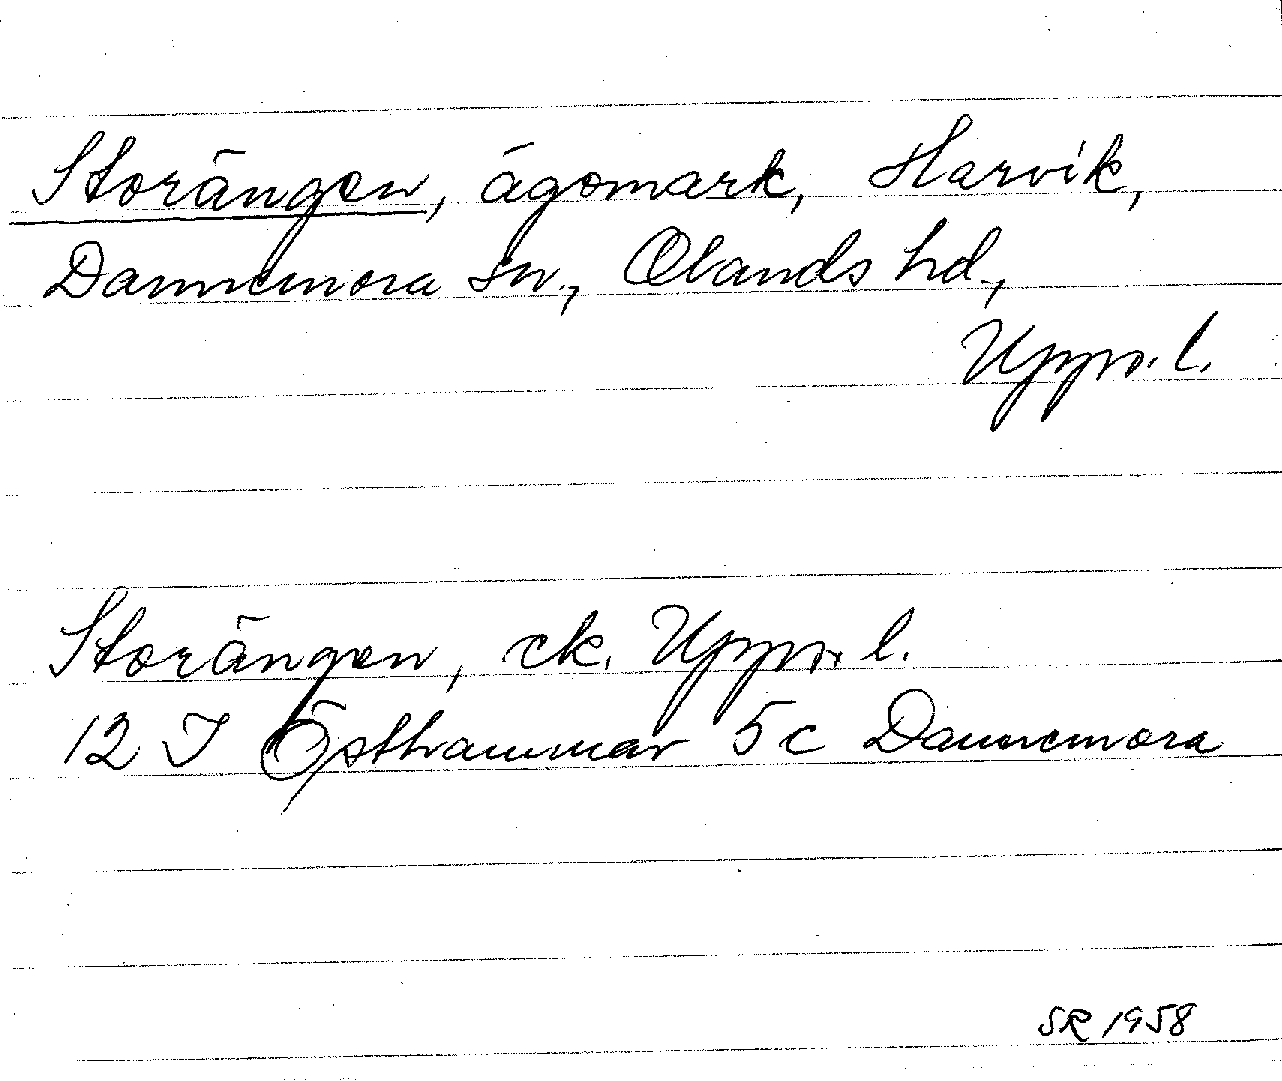 Storängen, ägomark, Harvik,
Dannemora sn., Olands hd.,
Upps. l.
Storängen, ek. Upps. l.
12 I Östhammar 5c Dannemora
SR 1958